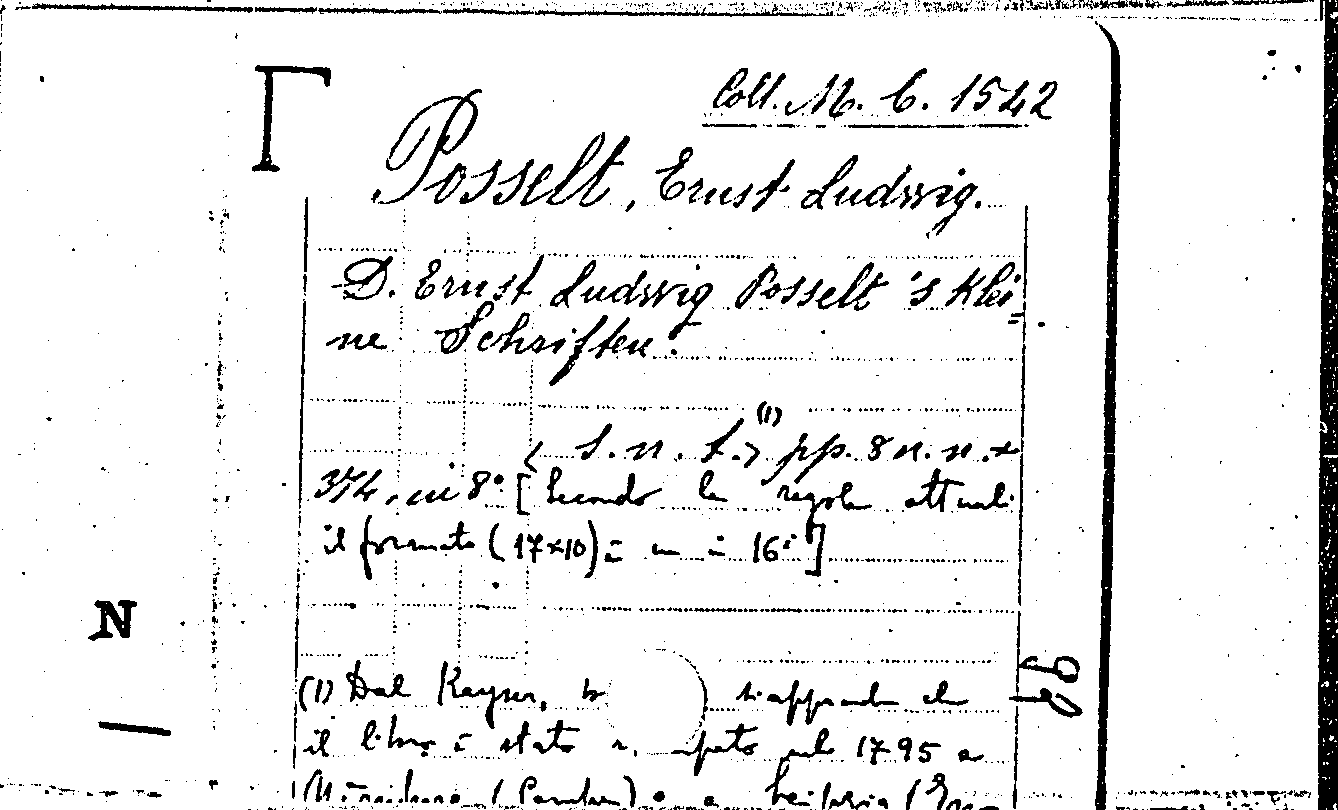 Γ
Coll. M. C. 1542
Posselt, Ernst Ludwig.
D. Ernst Ludwig Posselt 's Klei=
ne Schriften.
< s. n. t. > (1) pp. 8 n. n. +
374. in 8° [Secondo le regole attuali
il formato (17×10) è un in 16°]
(1) Dal Kayser, si apprende che
il libro è stato nel 1795 a
Leipzig
N